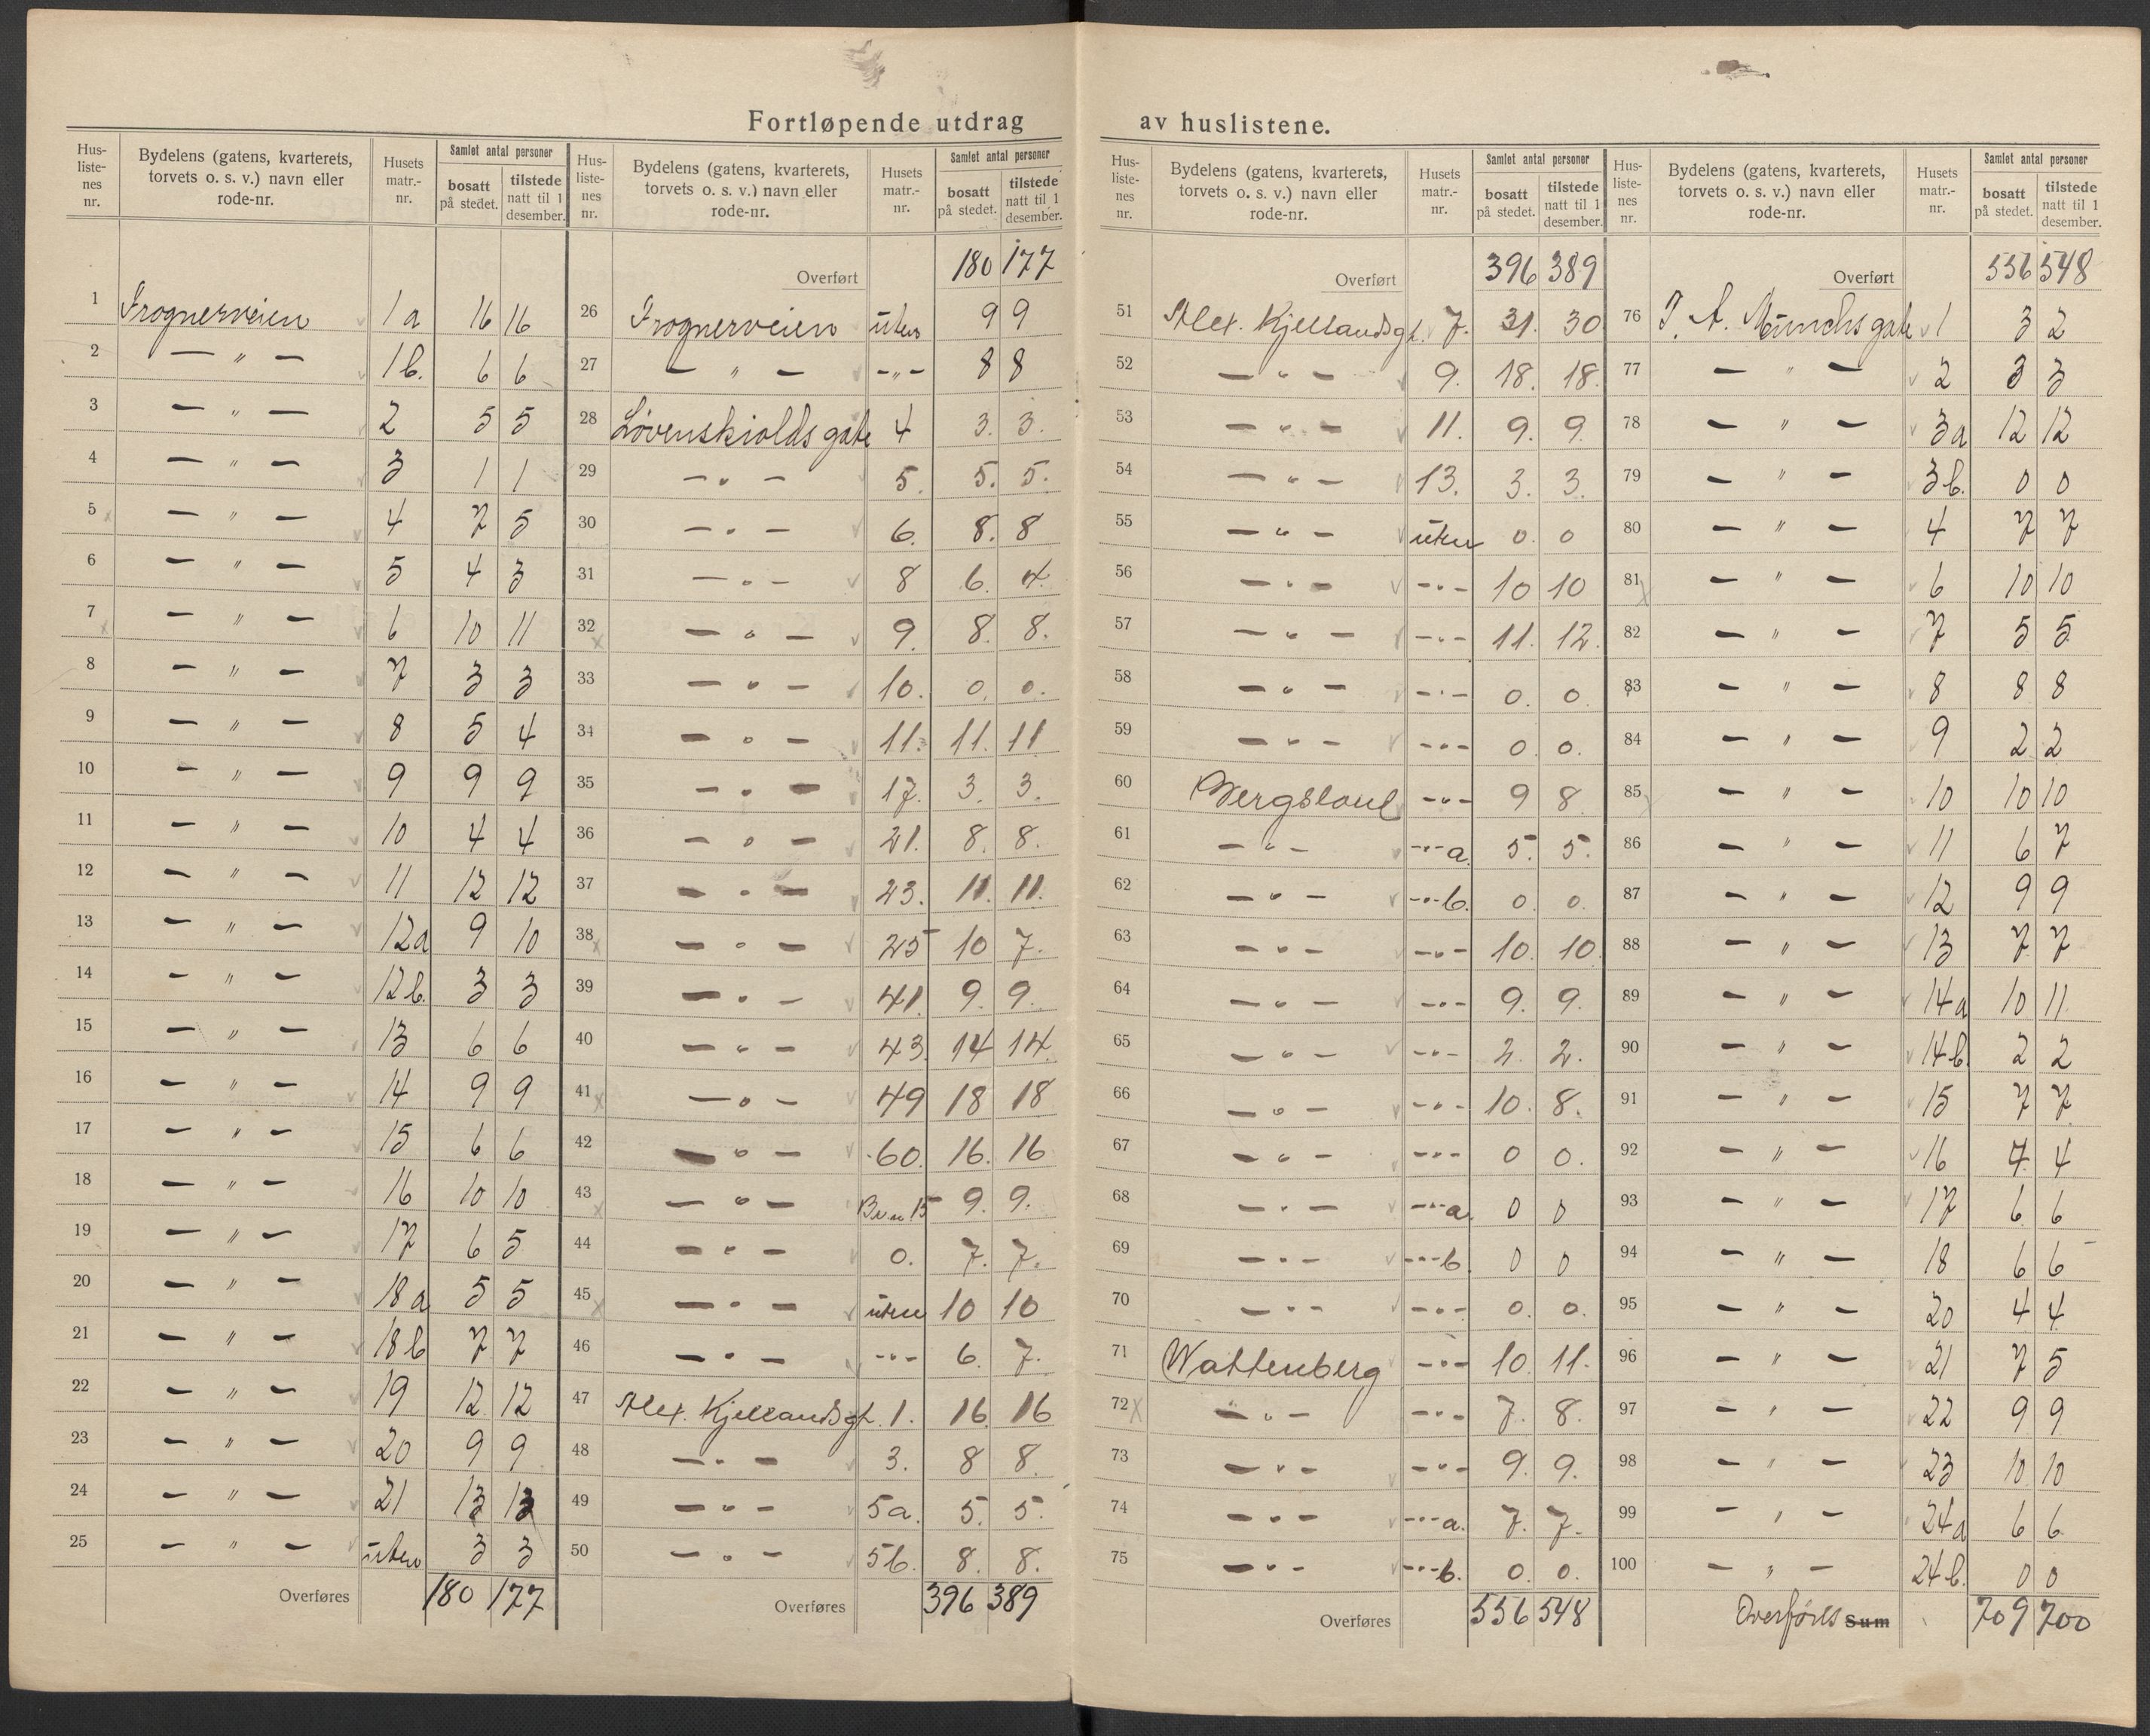 Fortløpende utdrag av huslistene.
Hus-listenes nr. | Bydelens (gatens, kvarterets, torvets o. s. v.) navn eller rode-nr. | Husets matr.-nr. | Samlet antal personer bosatt på stedet. | tilstede natt til 1 desember.
1 Frognerveien 1a 16 16
2 — " — 1b. 6 6
3 — " — 2 5 5
4 — " — 3 1 1
5 — " — 4 7 5
6 — " — 5 4 3
7 — " — 6 10 11
8 — " — 7 3 3
9 — " — 8 5 4
10 — " — 9 9 9
11 — " — 10 4 4
12 — " — 11 12 12
13 — " — 12a 9 10
14 — " — 12b. 3 3
15 — " — 13 6 6
16 — " — 14 9 9
17 — " — 15 6 6
18 — " — 16 10 10
19 — " — 17 6 5
20 — " — 18a 5 5
21 — " — 18b 7 7
22 — " — 19 12 12
23 — " — 20 9 9
24 — " — 21 13 13
25 — " — uten 3 3
Overføres 180 177
Hus-listenes nr. | Bydelens (gatens, kvarterets, torvets o. s. v.) navn eller rode-nr. | Husets matr.-nr. | Samlet antal personer bosatt på stedet. | tilstede natt til 1 desember.
Overført 180 177
26 Frognerveien uten 9 9
27 — " — -"- 8 8
28 Løvenskiolds gate 4 3. 3.
29 — " — 5. 5. 5.
30 — " — 6. 8. 8
31 — " — 8 6. 4.
32 — " — 9. 8. 8.
33 — " — 10. 0. 0.
34 — " — 11. 11. 11
35 — " — 17. 3. 3.
36 — " — 21. 8. 8.
37 — " — 23. 11. 11.
38 — " — 25 10 7.
39 — " — 41. 9. 9.
40 — " — 43. 14 14.
41 — " — 49 18 18
42 — " — 60. 16. 16
43 — " — 15 9. 9.
44 — " — 0. 7. 7.
45 — " — uten 10 10
46 — " — -"- 6. 7.
47 Alex. Kjellandsgt. 1. 16. 16
48 — " — 3. 8 8.
49 — " — 5a. 5. 5.
50 — " — 5b. 8. 8.
Overføres 396 389
Hus-listenes nr. | Bydelens (gatens, kvarterets, torvets o. s. v.) navn eller rode-nr. | Husets matr.-nr. | Samlet antal personer bosatt på stedet. | tilstede natt til 1 desember.
Overført 396 389
51 Alex. Kjellandsgt. 7. 31. 30
52 — " — 9. 18. 18.
53 — " — 11. 9. 9.
54 — " — 13. 3. 3.
55 — " — uten 0. 0
56 — " — -"- 10 10
57 — " — -"- 11. 12.
58 — " — -"- 0. 0.
59 — " — -"- 0. 0.
60 Bergsland -"- 9 8.
61 — " — -"- a. 5. 5.
62 — " — -"- b. 0. 0.
63 — " — -"- 10. 10.
64 — " — -"- 9. 9.
65 — " — -"- 2. 2.
66 — " — -"- 10. 8.
67 — " — -"- 0 0.
68 — " — -"- a. 0 0
69 — " — -"- b. 0 0
70 — " — -"- 0. 0.
71 Wattenberg -"- 10. 11.
72 — " — -"- 7. 8.
73 — " — -"- 9. 9.
74 — " — -"- a. 7. 7.
75 — " — -"- b. 0. 0.
Overføres 556 548
Hus-listenes nr. | Bydelens (gatens, kvarterets, torvets o. s. v.) navn eller rode-nr. | Husets matr.-nr. | Samlet antal personer bosatt på stedet. | tilstede natt til 1 desember.
Overført 556 548
76 P. A. Munchs gate 1 3 2
77 — " — 2 3 3
78 — " — 3a 12 12
79 — " — 3b. 0 0
80 — " — 4 7 7
81 — " — 6 10 10
82 — " — 7 5 5
83 — " — 8 8 8
84 — " — 9 2 2
85 — " — 10 10 10
86 — " — 11 6 7
87 — " — 12 9 9
88 — " — 13 7 7
89 — " — 14a 10 11
90 — " — 14b. 2 2
91 — " — 15 7 7
92 — " — 16 7 4
93 — " — 17 6 6
94 — " — 18 6 6
95 — " — 20 4 4
96 — " — 21 7 5
97 — " — 22 9 9
98 — " — 23 10 10
99 — " — 24a 6 6
100 — " — 24b. 0 0
Overføres Sum 709 700